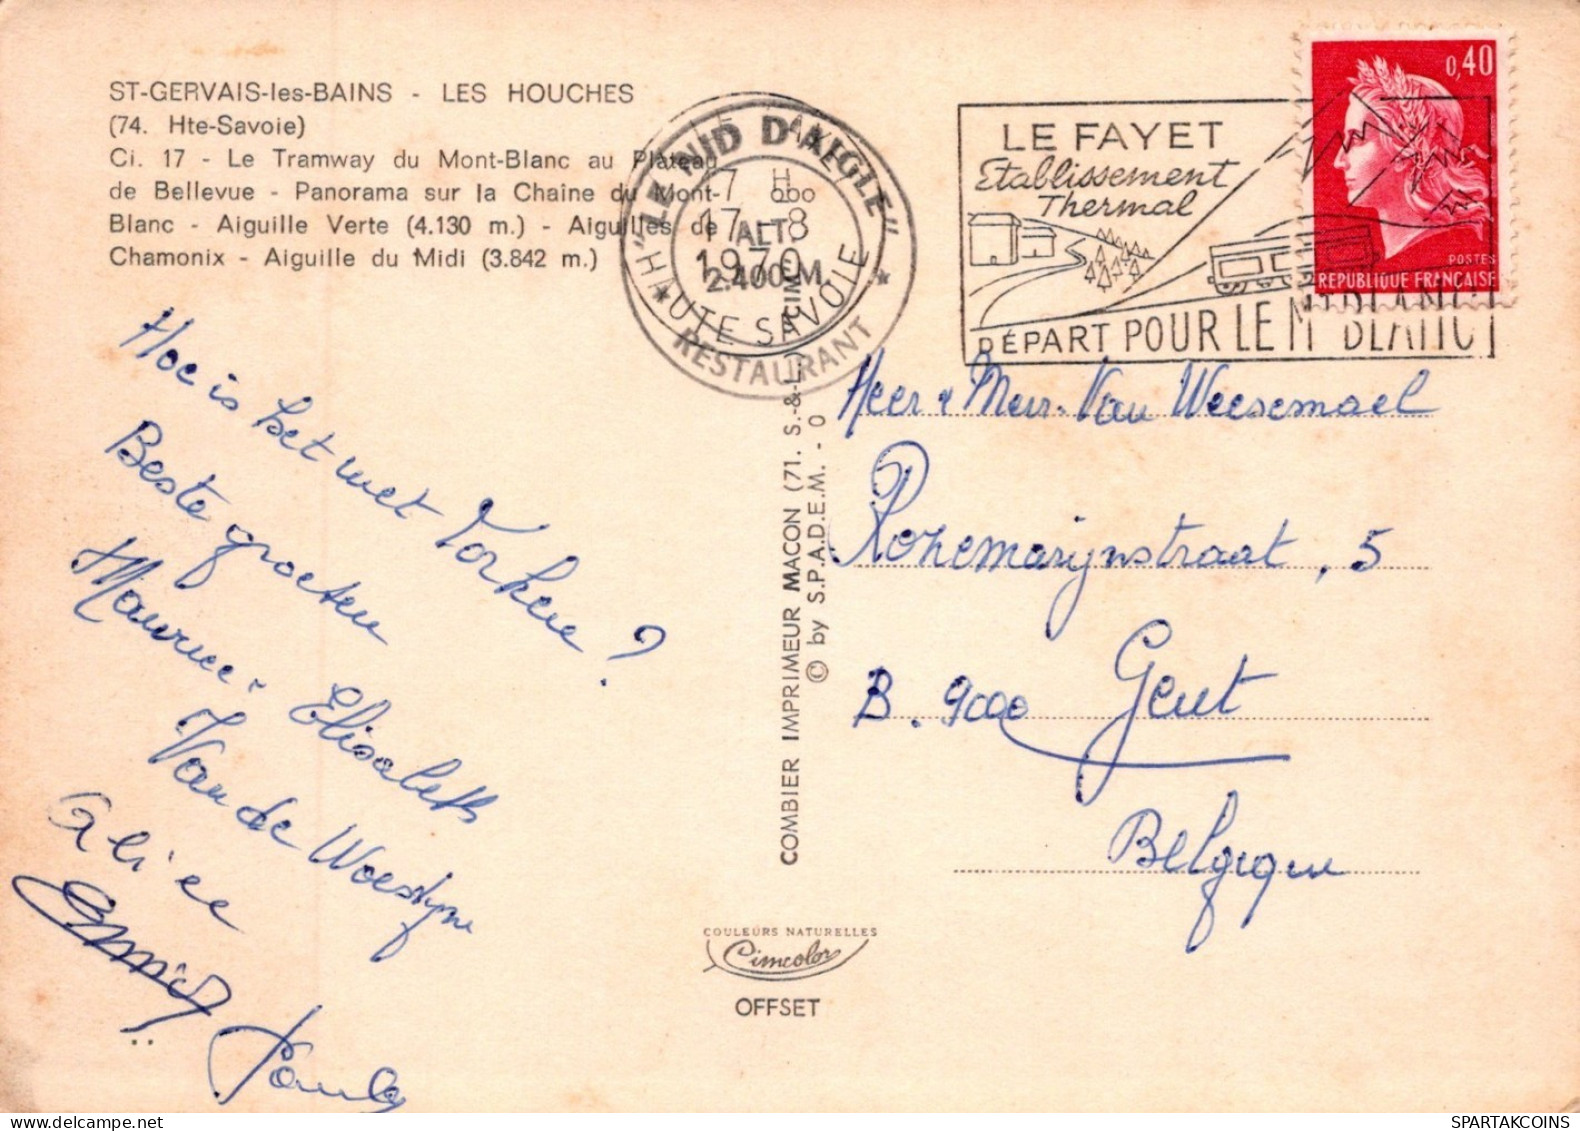 ST-GERVAIS-les-BAINS - LES HOUCHES
(74. Hte-Savoie)
Ci. 17 - Le Tramway du Mont-Blanc au Plateau
de Bellevue - Panorama sur la Chaîne du Mont-
Blanc - Aiguille Verte (4.130 m.) - Aiguilles de
Chamonix - Aiguille du Midi (3.842 m.)
"LE NID D'AIGLE"
7 H
17 - 8
1970
ALT.
2.400 M
HAUTE SAVOIE
RESTAURANT
LE FAYET
Etablissement
Thermal
DÉPART POUR LE MT BLANC
0,40
POSTES
REPUBLIQUE FRANÇAISE
Hoe is het met
?
Beste groeten
Maurice - Elisabeth
Van de Woestyne
Alice
Pauly
COMBIER IMPRIMEUR MACON (71. S.-&-L.) "CIM"
© by S.P.A.D.E.M. - O
COULEURS NATURELLES
Cimcolor
OFFSET
Heer & Mevr. Van Weesemael
Rozemarijnstraat, 5
B. 9000 Gent
Belgique
SPARTAKCOINS